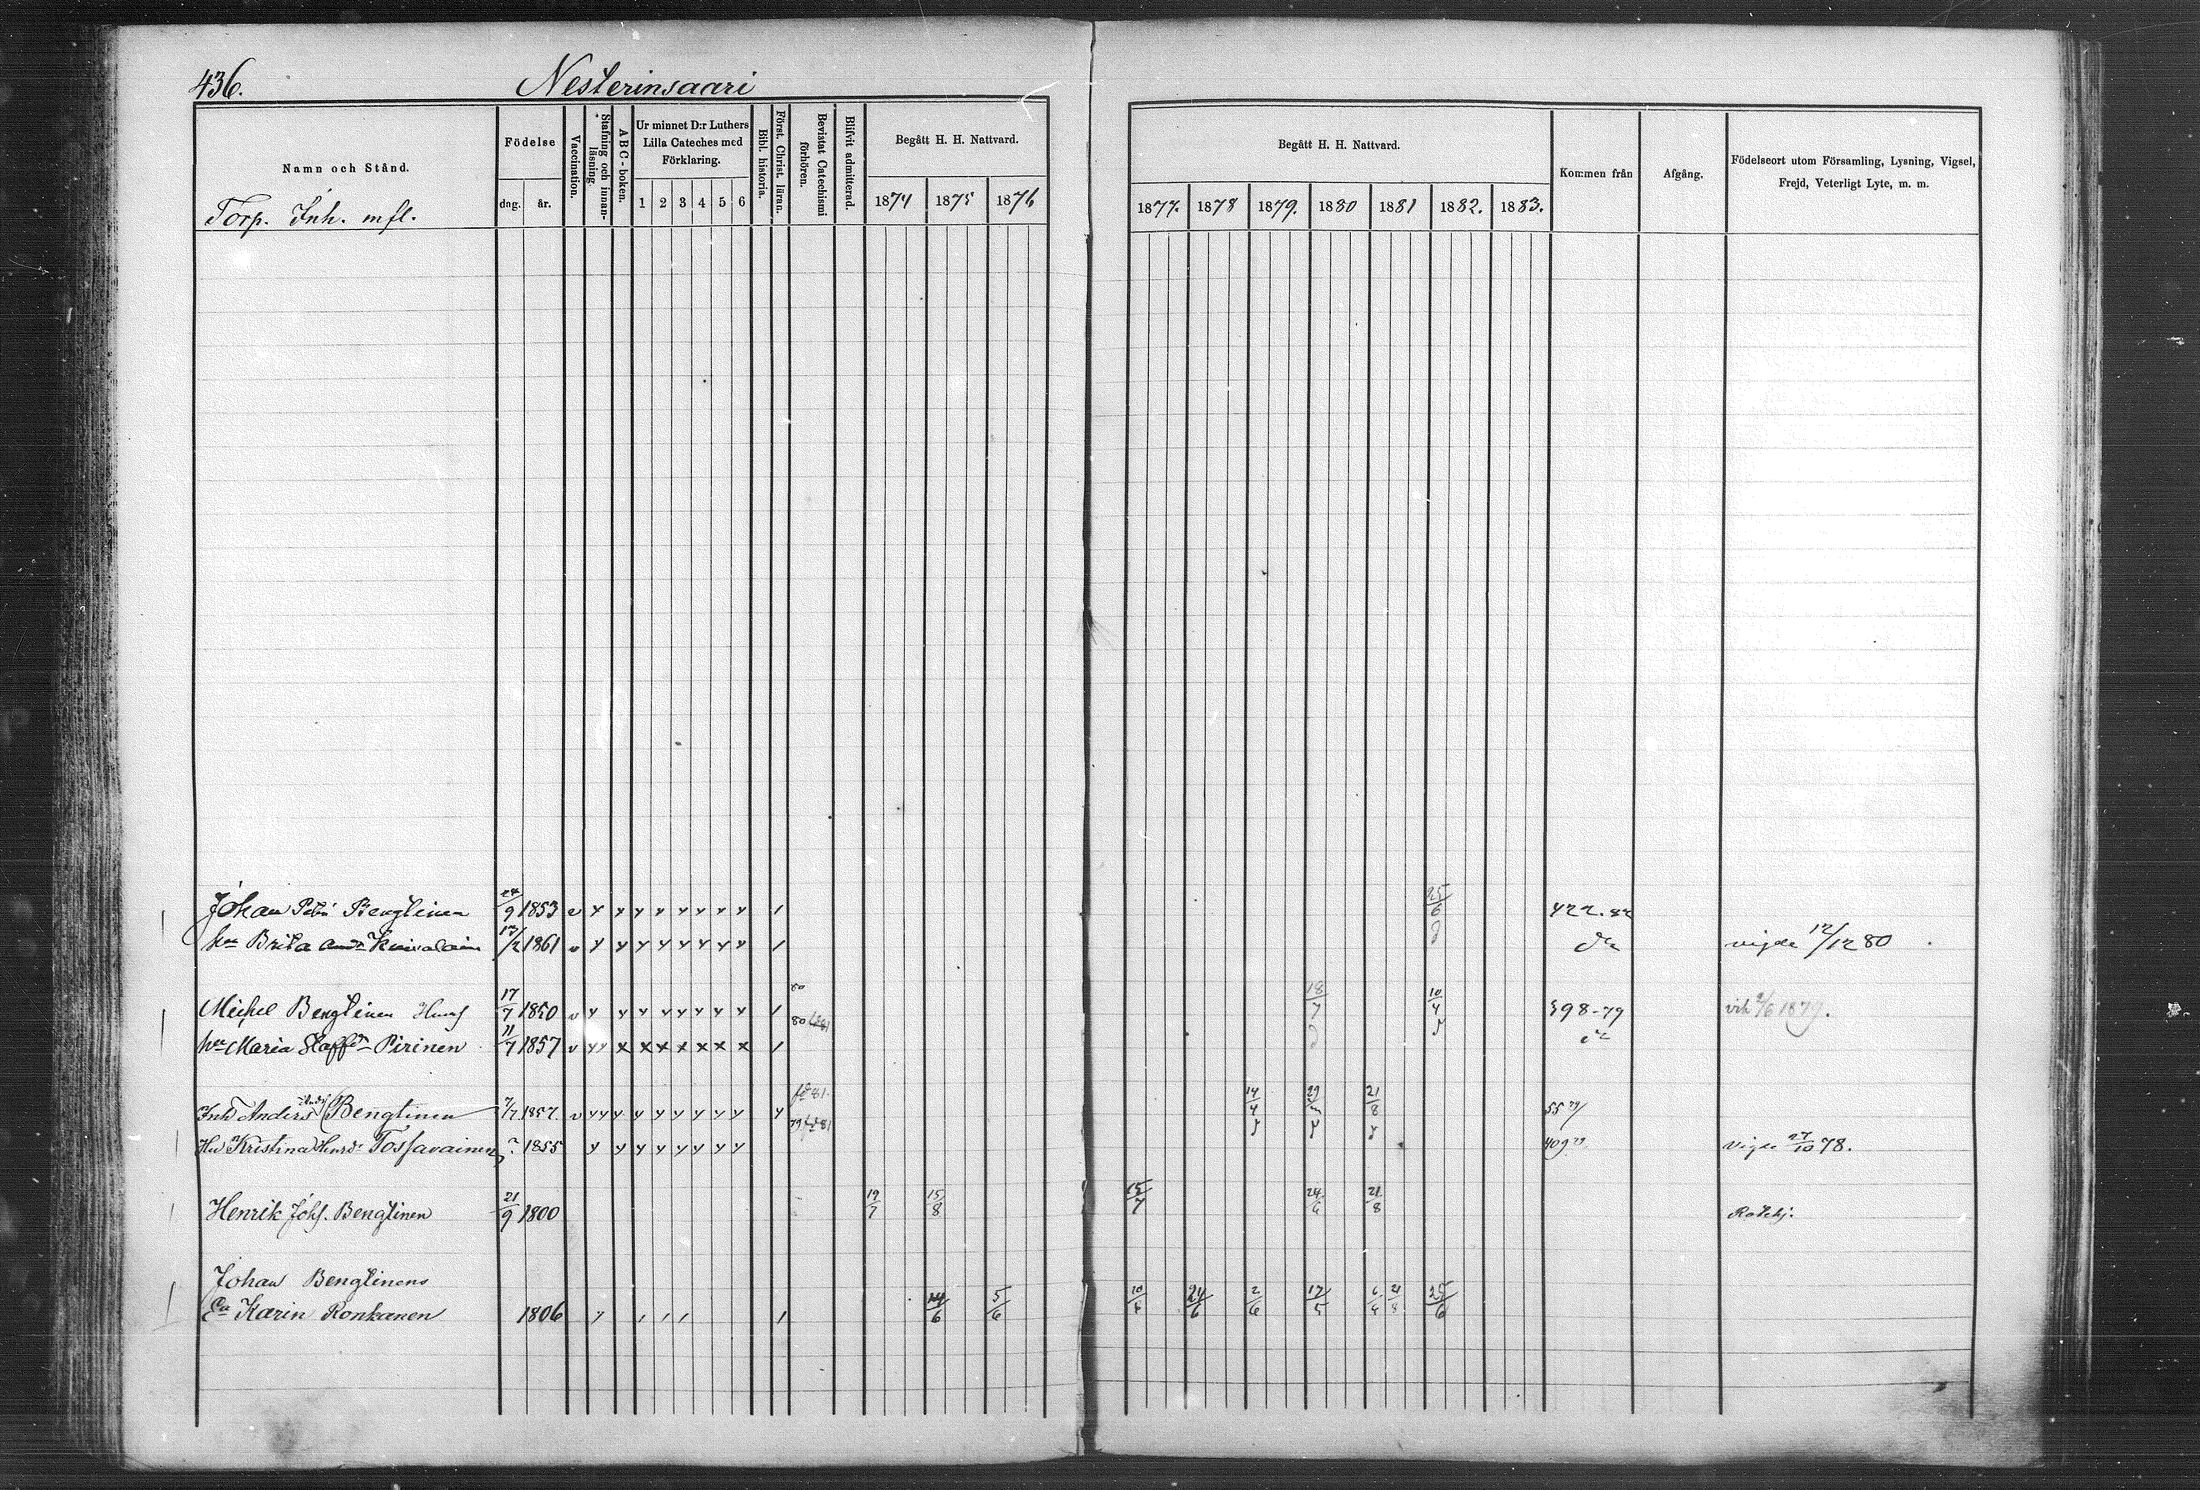 436. Nesterinsaari
Namn och Stånd.
Torp. Inh. mfl.
Födelse
dag. år.
Vaccination.
Stafning och innan-läsning.
ABC-boken.
Ur minnet D:r Luthers
Lilla Cateches med
Förklaring.
1 2 3 4 5 6
Bibl. historia.
Först. Christ. läran.
Bevistat Catechismi förhören.
Blifvit admitterad.
Begått H. H. Nattvard.
1874 1875 1876
Begått H. H. Nattvard.
1877. 1878 1879. 1880 1881 1882. 1883.
Kommen från
Afgång.
Födelseort utom Församling, Lysning, Vigsel,
Frejd, Veterligt Lyte, m. m.
Johan Bengtinen 24/9 1853 v 25/6 422.82
hu Brita 13/2 1861 v vigde 12/12 80
Michel Bengtinen 17/7 1850 v 80 18/7 10/4 398-79 1879.
hu Maria Staff Pirinen 11/7 1857 v 80 81
Inh Anders Bengtinen 7/7 1857 v 81. 14/4 21/8 55 79
Hu Kristina Tossavainen ? 1855 79 81 409 vigde 27/10 78.
Henrik Johs. Bengtinen 21/9 1800 19/7 15/8 15/7 24/6 21/8
Johan Bengtinens
Ea Karin Ronkanen 1806 14/6 5/6 10/6 24/6 2/6 17/5 21/8 25/6